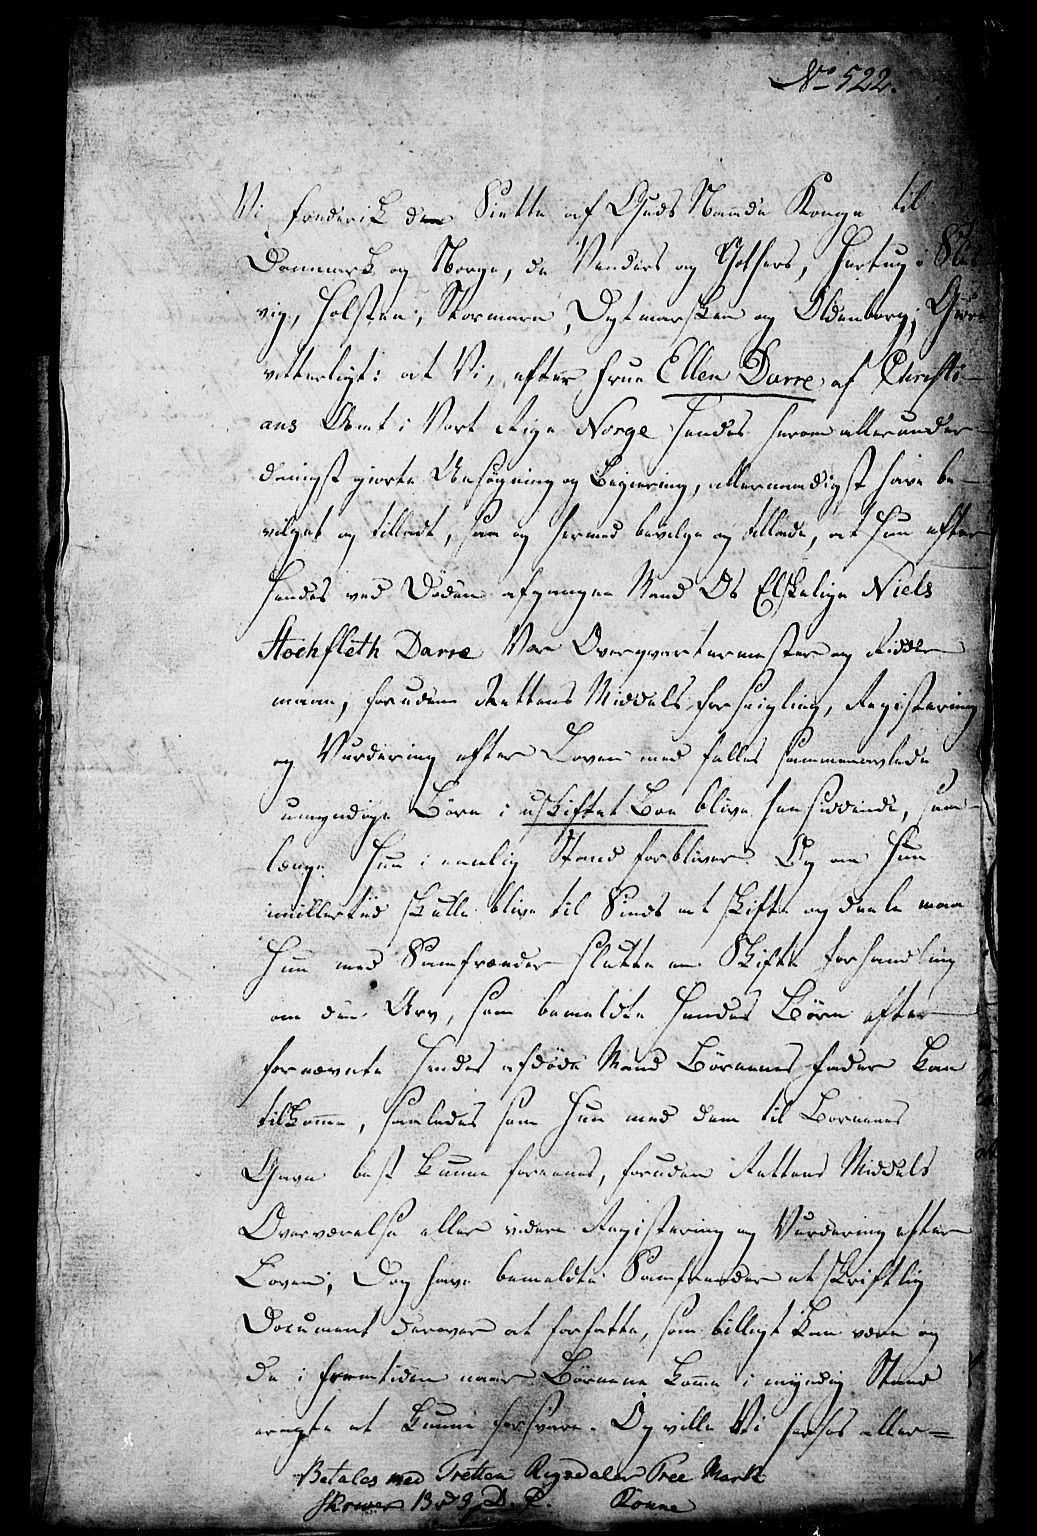 No 522.
Vi Frederik den Siette af Guds Naade Konge til
Danmark og Norge, de Venders og Gothers, Hertug i Sles
vig, Holsten, Stormarn, Dytmarsken og Oldenborg; Giøre
vitterligt: at Vi, efter Frue Ellen Darre af Christi-
ans Amt i Vort Rige Norge Hendes herom allerunder-
danigst giorte Ansøgning og Begiering, allernaadigst have be-
vilget og tilladt, saa og hermed bevilge og tillade, at hun efter
Hendes ved Døden afgangne Mand Os Elskelige Niels
Stochfleth Darre Vor Overqvarteermester og Ridder
maae, foruden Rettens Middels Forseigling, Registering
og Vurdering efter Loven med fælles sammenavlede
umyndige Børn i uskiftet Boe blive hensiddende, saa-
længe Hun i eenlig Stand forbliver. Og om Hun
imidlertiid skulle blive til Sinds at skifte og deele maa
Hun med Samfrænder slutte en Skifte Forhandling
om den Arv, som bemeldte Hendes Børn efter
fornævnte Hendes afdøde Mand Børnenes Fader kan
tilkomme, saaledes som Hun med dem til Børnenes
Gavn best kunne foreenes, foruden Rettens Middels
Overværelse eller videre Registering og Vurdering efter
Loven; Dog have bemeldte Samfrænder et skriftlig
Document derover at forfatte, som billigt kan være og
de i Fremtiden naar Børnene komme i myndig Stand
agte at kunne forsvare. Og ville Vi hersos aller=
Betales med Tretten Rigsdaler Tree Mark
skriver 13 rd 3 D. C. Konne